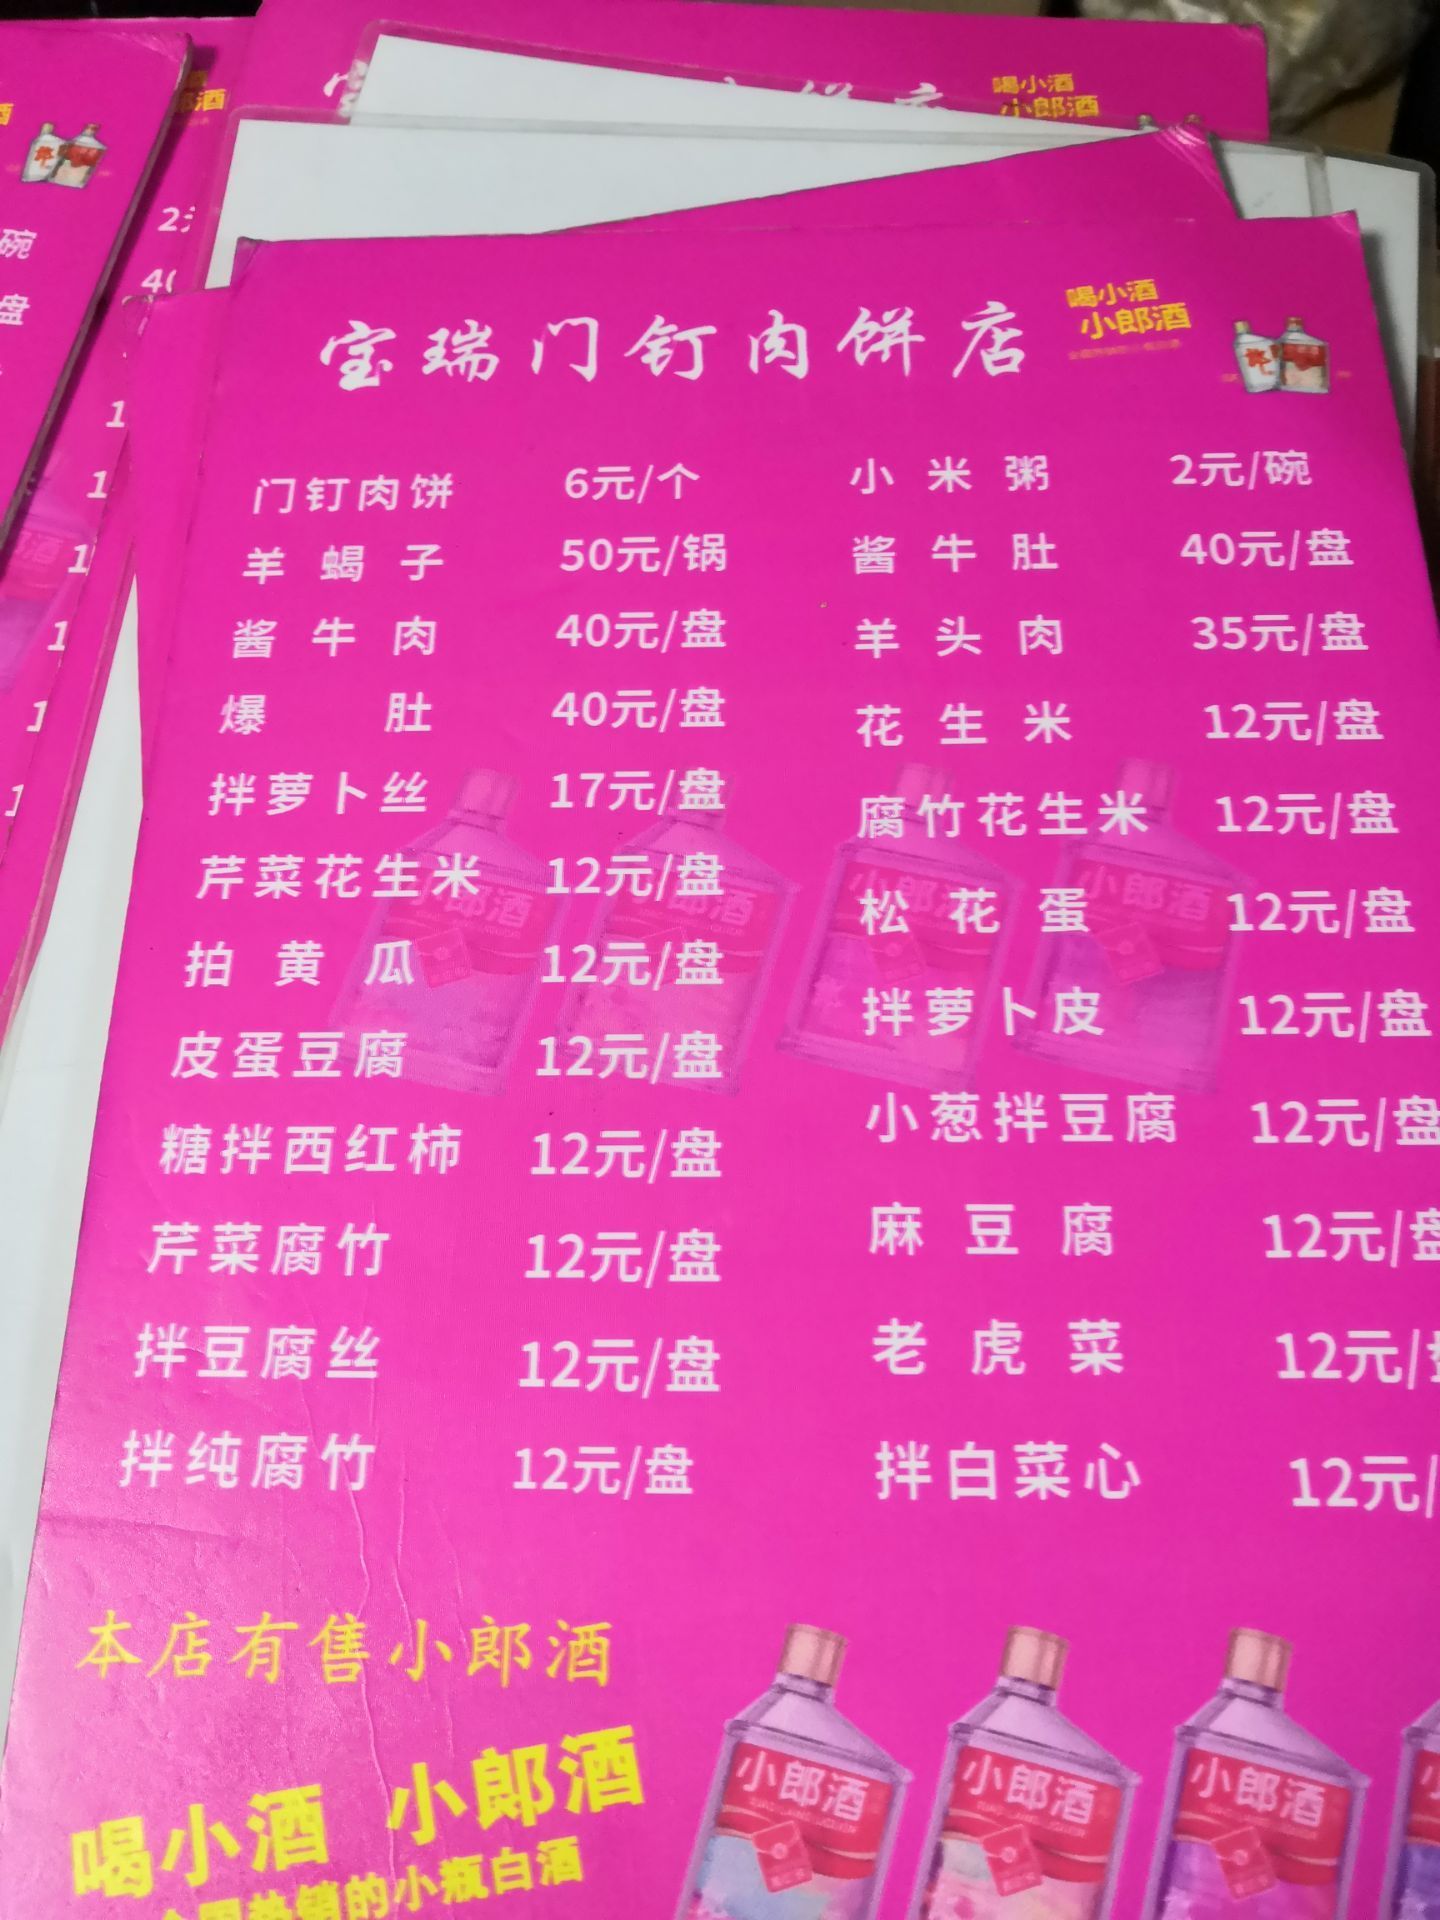 喝小酒
小郎酒
宝瑞门钉肉饼店
喝小酒
小郎酒
门钉肉饼 6元/个 小米粥 2元/碗
羊蝎子 50元/锅 酱牛肚 40元/盘
酱牛肉 40元/盘 羊头肉 35元/盘
爆肚 40元/盘 花生米 12元/盘
拌萝卜丝 17元/盘 腐竹花生米 12元/盘
芹菜花生米 12元/盘 松花蛋 12元/盘
拍黄瓜 12元/盘 拌萝卜皮 12元/盘
皮蛋豆腐 12元/盘 小葱拌豆腐 12元/盘
糖拌西红柿 12元/盘 麻豆腐 12元/盘
芹菜腐竹 12元/盘 老虎菜 12元/
拌豆腐丝 12元/盘 拌白菜心 12元/
拌纯腐竹 12元/盘
本店有售小郎酒
喝小酒 小郎酒
全国热销的小瓶白酒
小郎酒
小郎酒
小郎酒